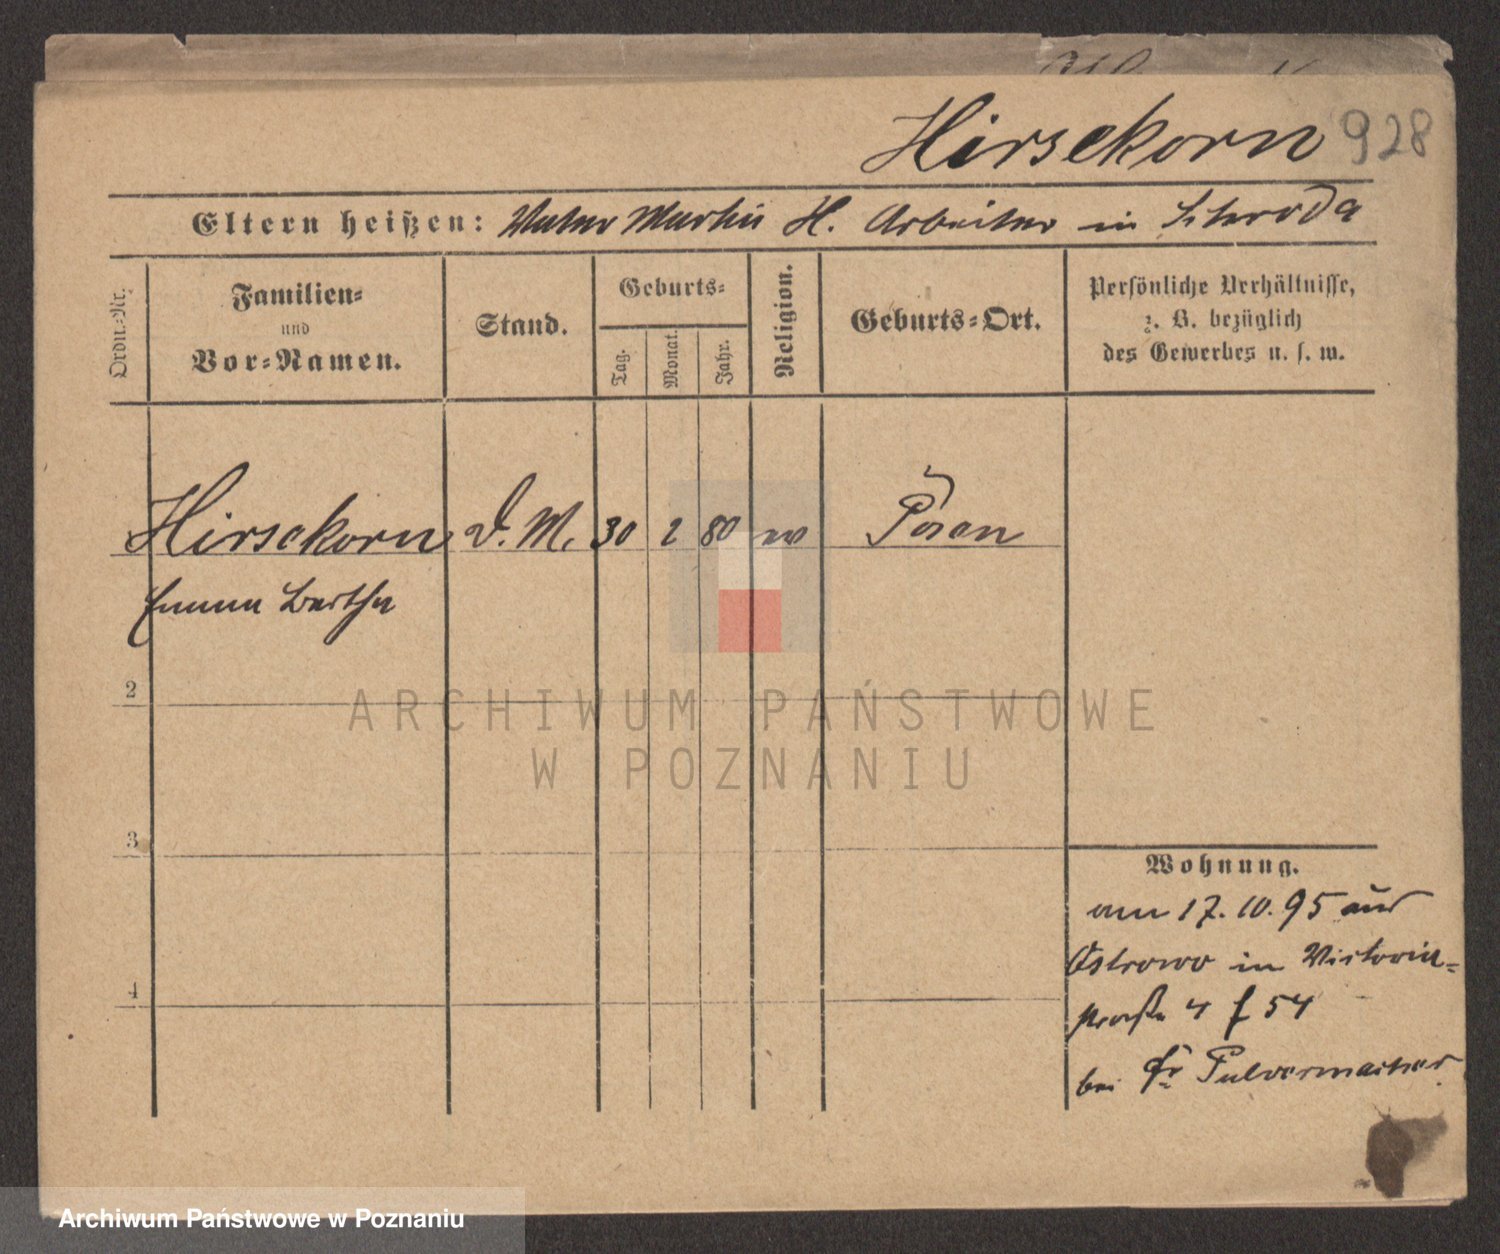 Hirsekorn 928
Eltern heißen: Vater Martin H. Arbeiter in Schroda
Ordn.-Nr.
Familien-
und
Vor-Namen.
Stand.
Geburts-
Tag.
Monat.
Jahr.
Religion.
Geburts-Ort.
Persönliche Verhältnisse,
z. B. bezüglich
des Gewerbes u. s. w.
Hirsekorn D. M. 30 2 80 ev Posen
Emma Bertha
2
3
4
Wohnung.
am 17. 10. 95 aus
Ostrowo in Victoria-
straße 4 f 54
bei Fr Pulvermacher
ARCHIWUM PAŃSTWOWE
W POZNANIU
Archiwum Państwowe w Poznaniu